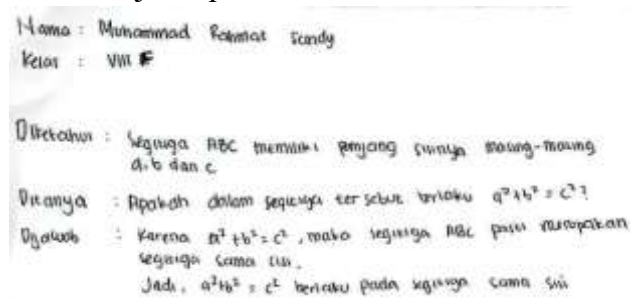 Nama : Muhammad Rahmat Scandy
Kelas : VIII F
Diketahui : Segitiga ABC memiliki panjang sisinya masing-masing
a, b dan c
Ditanya : Apakah dalam segitiga tersebut berlaku a² + b² = c² ?
Dijawab : Karena a² + b² = c², maka segitiga ABC pasti merupakan
segitiga sama sisi.
Jadi, a² + b² = c² berlaku pada segitiga sama sisi